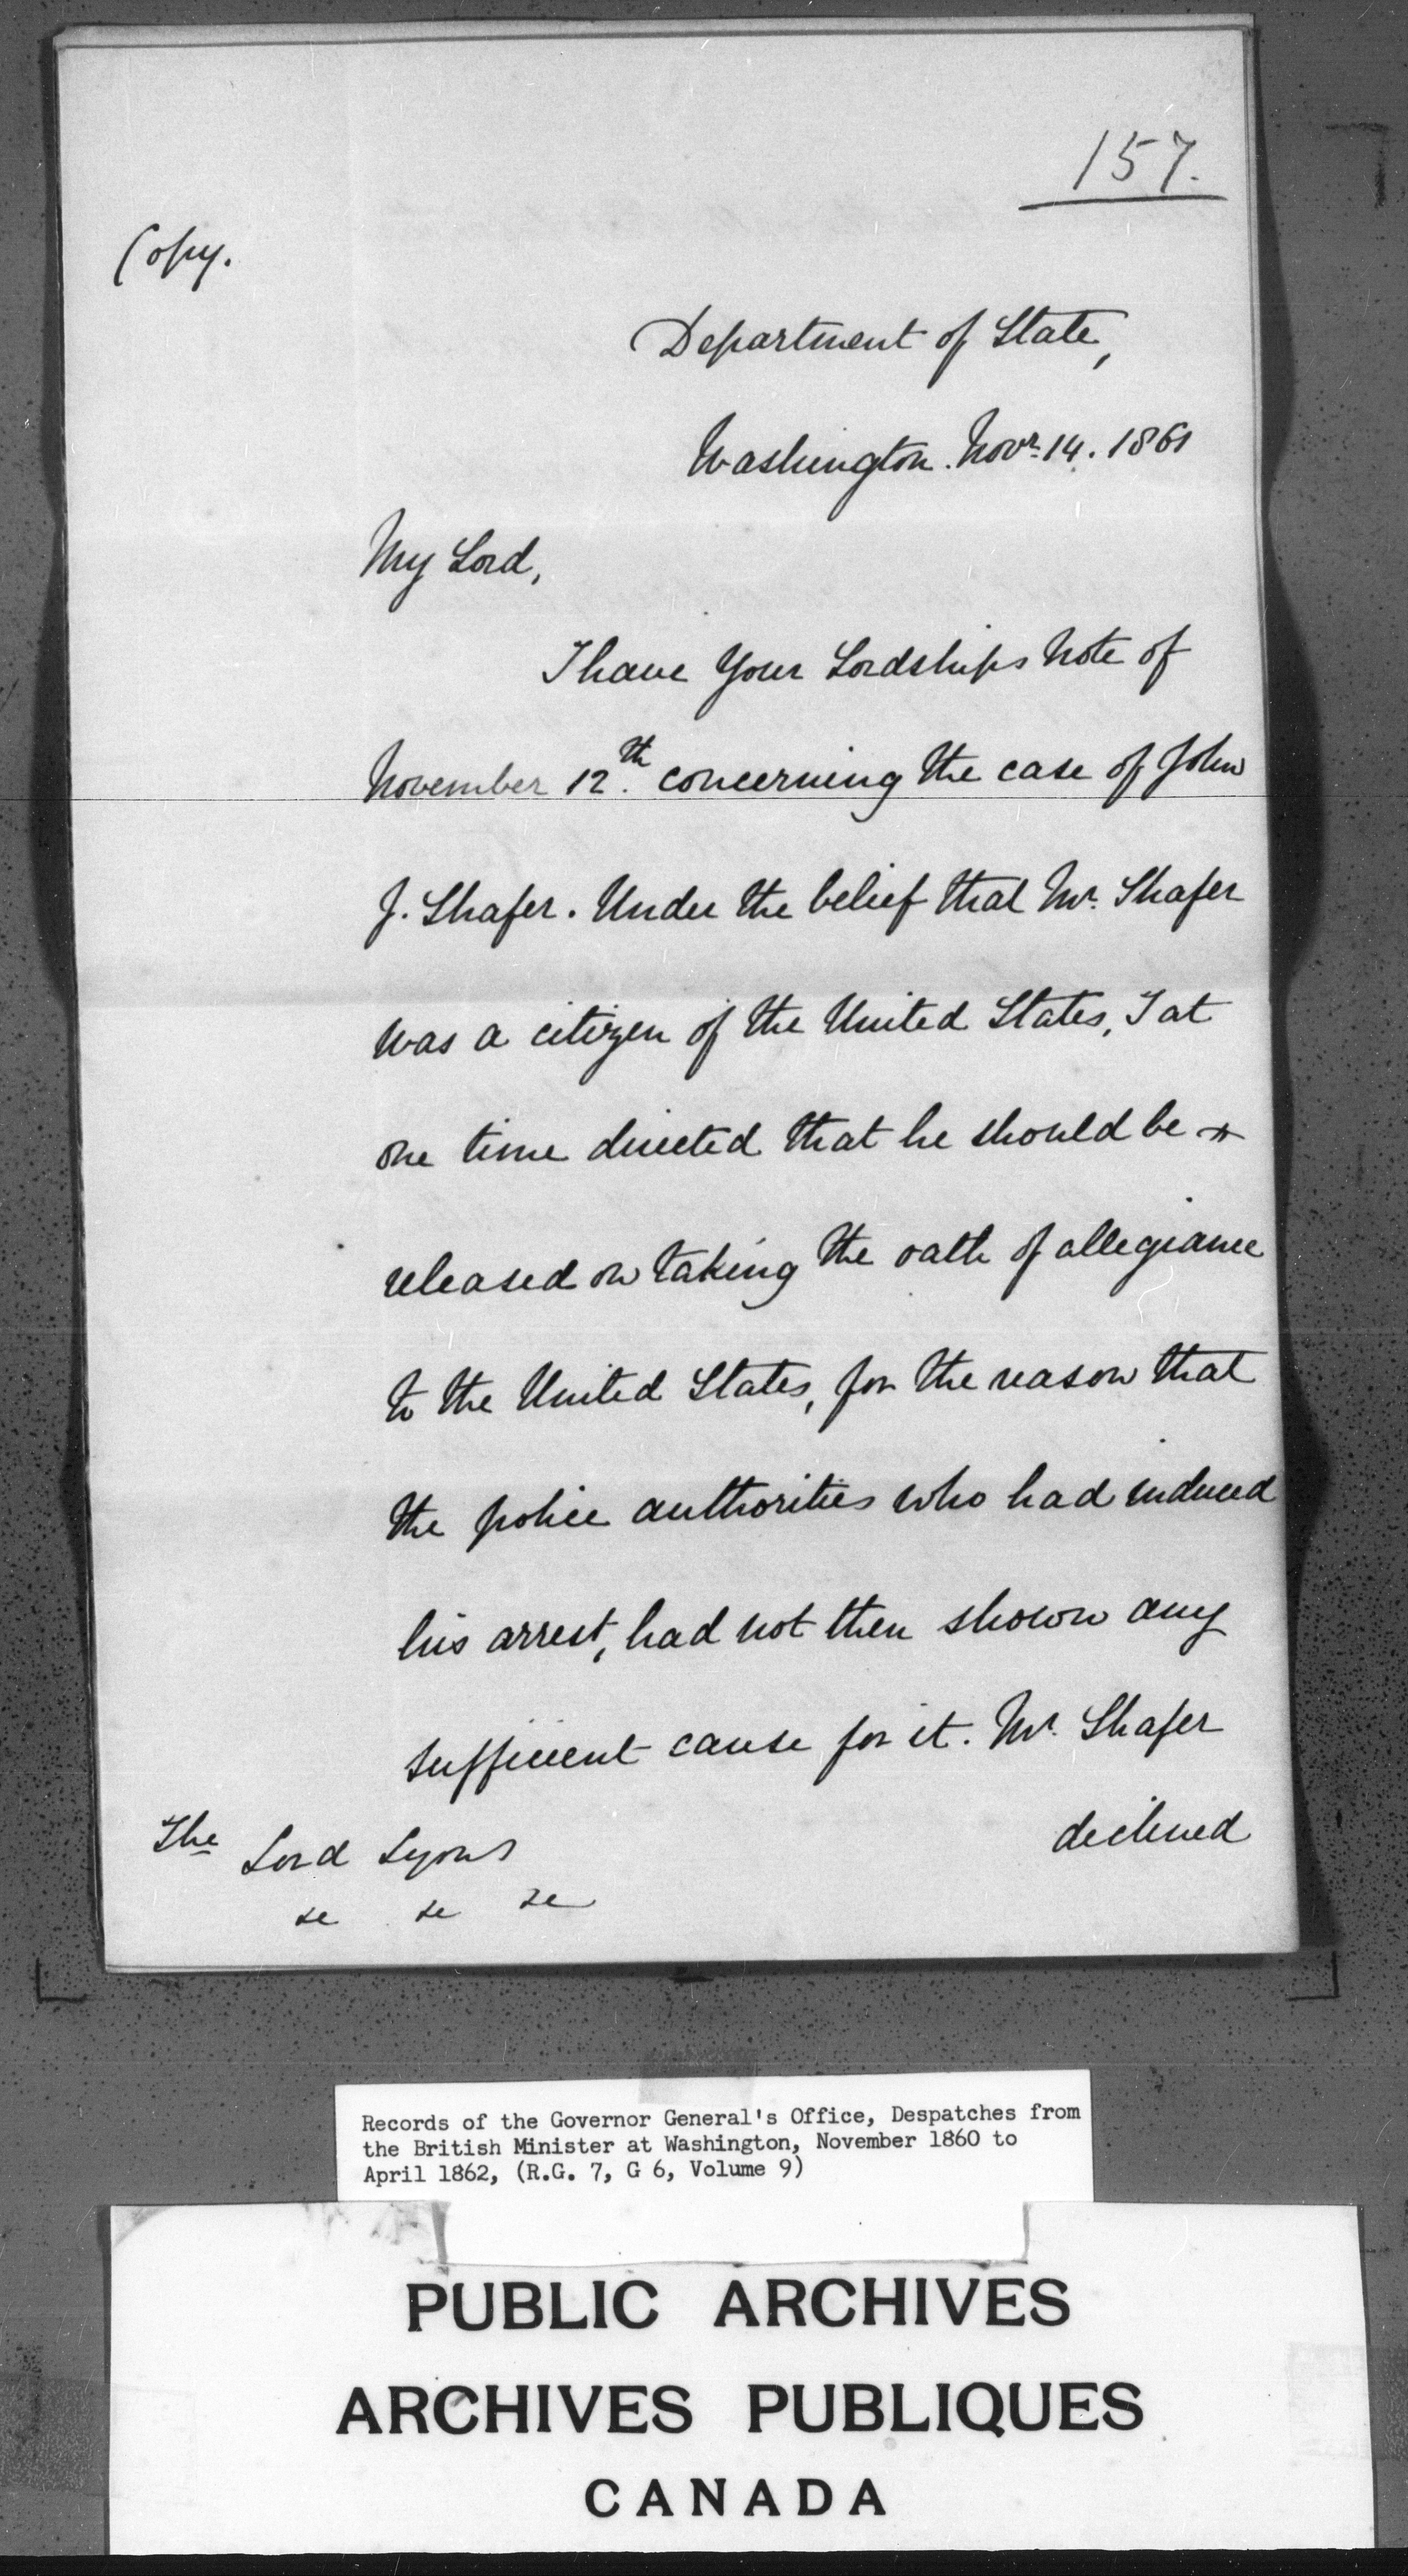 157.
Copy.
Department of State,
Washington. Novr. 14. 1861
My Lord,
I have Your Lordships Note of
November 12th. concerning the case of John
J. Shafer. Under the belief that Mr. Shafer
was a citizen of the United States, I at
one time directed that he should be
released on taking the oath of allegiance
to the United States, for the reason that
the police authorities who had induced
his arrest, had not then shown any
sufficient cause for it. Mr. Shafer
declined
The Lord Lyons
&c &c &c
Records of the Governor General's Office, Despatches from
the British Minister at Washington, November 1860 to
April 1862, (R.G. 7, G 6, Volume 9)
PUBLIC ARCHIVES
ARCHIVES PUBLIQUES
CANADA